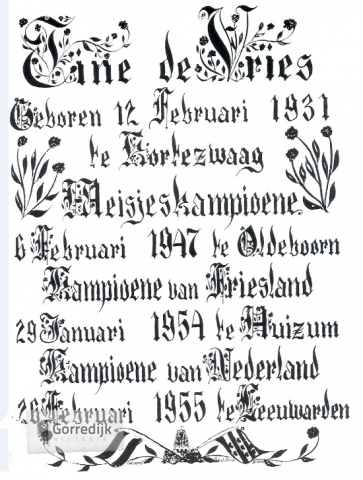 Tine de Vries
Geboren 12 Februari 1931
te Kortezwaag
Meisjeskampioene
6 Februari 1947 te Oldeboorn
Kampioene van Friesland
29 Januari 1954 te Huizum
Kampioene van Nederland
26 Februari 1955 te Leeuwarden
Gorredijk
HISTORIE